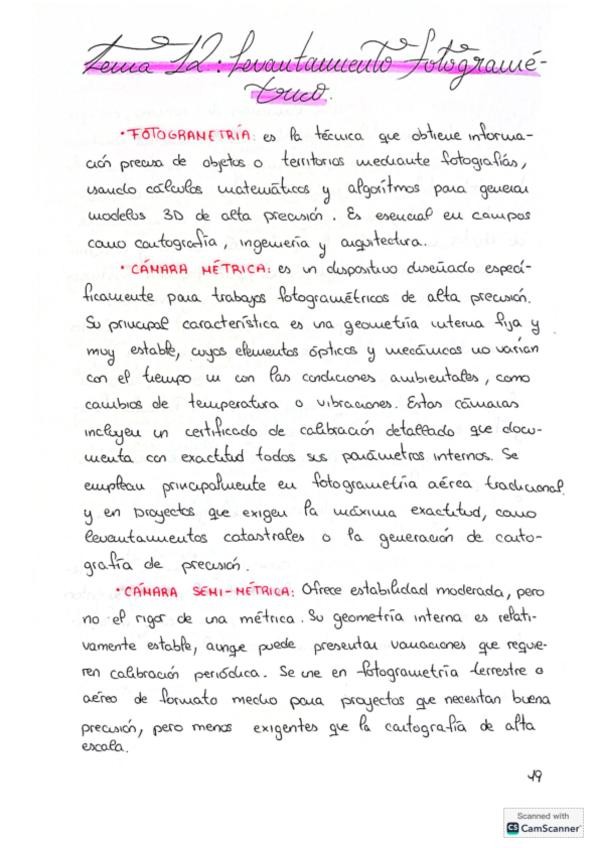 Tema 12: Levantamiento fotogramé-
trico.
• FOTOGRAMETRÍA: es la técnica que obtiene informa-
ción precisa de objetos o territorios mediante fotografías,
usando cálculos matemáticos y algoritmos para generar
modelos 3D de alta precisión. Es esencial en campos
como cartografía, ingeniería y arquitectura.
• CÁMARA MÉTRICA: es un dispositivo diseñado especí-
ficamente para trabajos fotogramétricos de alta precisión.
Su principal característica es una geometría interna fija y
muy estable, cuyos elementos ópticos y mecánicos no varían
con el tiempo ni con las condiciones ambientales, como
cambios de temperatura o vibraciones. Estas cámaras
incluyen un certificado de calibración detallado que docu-
menta con exactitud todos sus parámetros internos. Se
emplean principalmente en fotogrametría aérea tradicional
y en proyectos que exigen la máxima exactitud, como
levantamientos catastrales o la generación de carto-
grafía de precisión.
• CÁMARA SEMI-MÉTRICA: Ofrece estabilidad moderada, pero
no el rigor de una métrica. Su geometría interna es relati-
vamente estable, aunqe puede presentar variaciones que requie-
ren calibración periódica. Se une en fotogrametría terrestre o
aéreo de formato medio para proyectos que necesitan buena
precisión, pero menos exigentes que la cartografía de alta
escala.
49
Scanned with
CS CamScanner